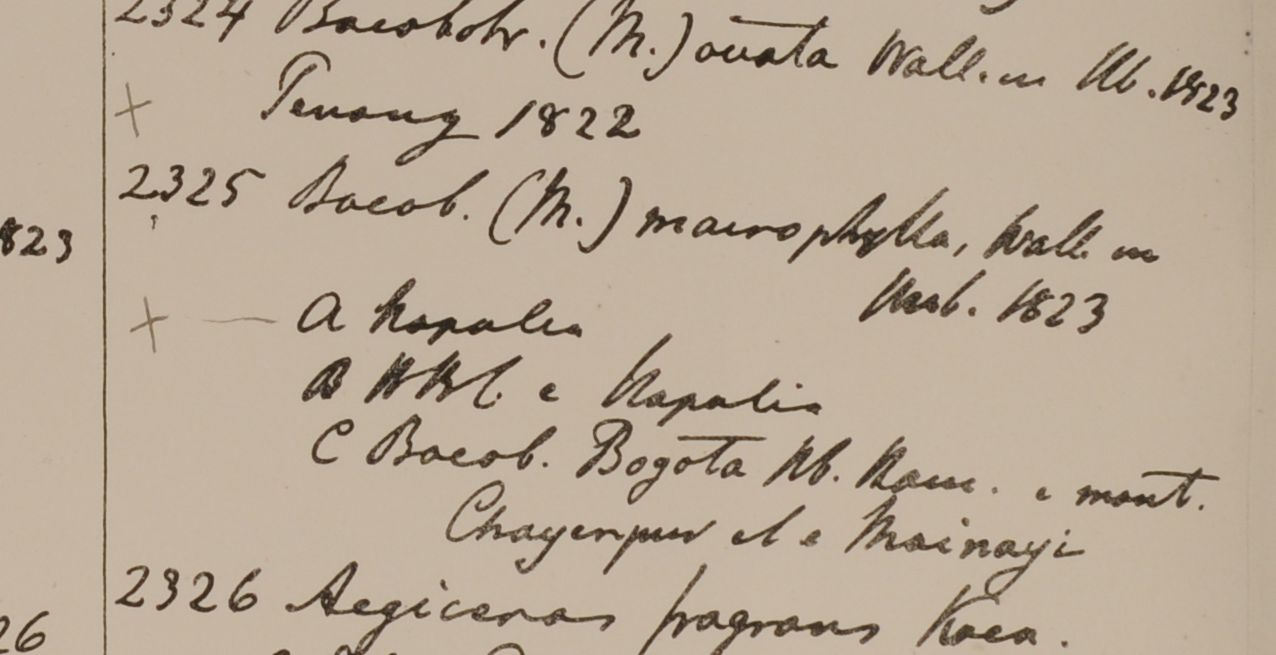 2324 Baeobotr. (M.) ovata Wall. in Hb. 1823
+ Penang 1822
2325 Baeob. (M.) macrophylla, Wall. in
823
Herb. 1823
+ — A Napalia
B HBC. e Napalia
C Baeob. Bogota Hb. Ham. e mont.
Chayenpur et e Mainayi
2326 Aegiceras fragrans Koen.
26